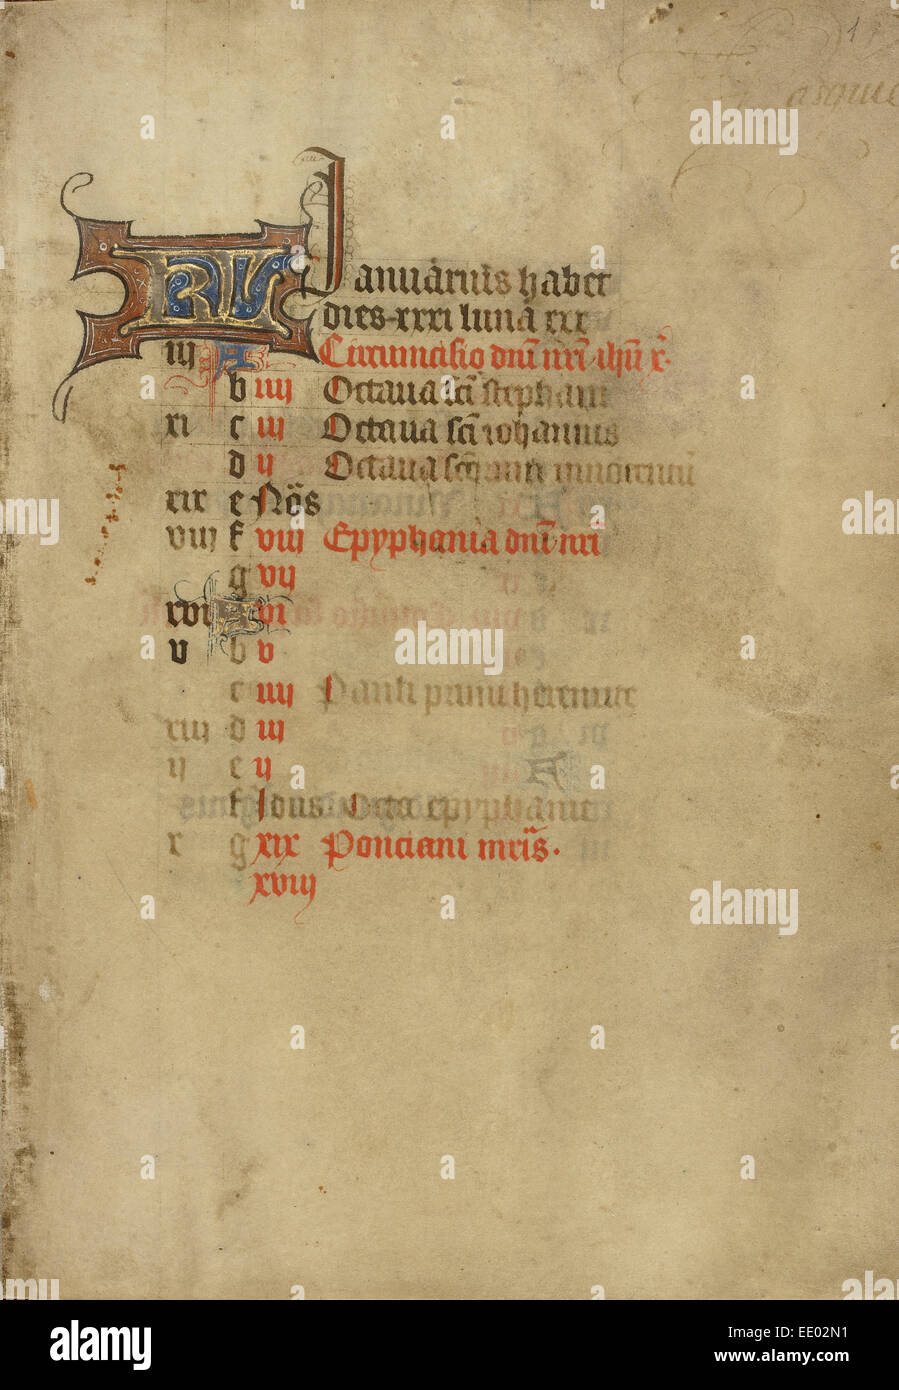 1
KL Januarius habet
dies xxxi luna xxx
iij A Circumcisio dnī nrī ihū x̄.
b iiij Octaua scī stephani
xi c iij Octaua scī iohannis
d ij Octaua scōrum innocentū
xix e Nōs
viij f viij Epyphania dnī nrī
g vij
xvi A vi
v b v
c iiij Pauli primi heremite
xiij d iij
ij e ij
f Idus Octa epyphanie
x g xix Ponciani mrīs.
xviij
alamy
alamy
alamy
alamy
Image ID: EE02N1
www.alamy.com